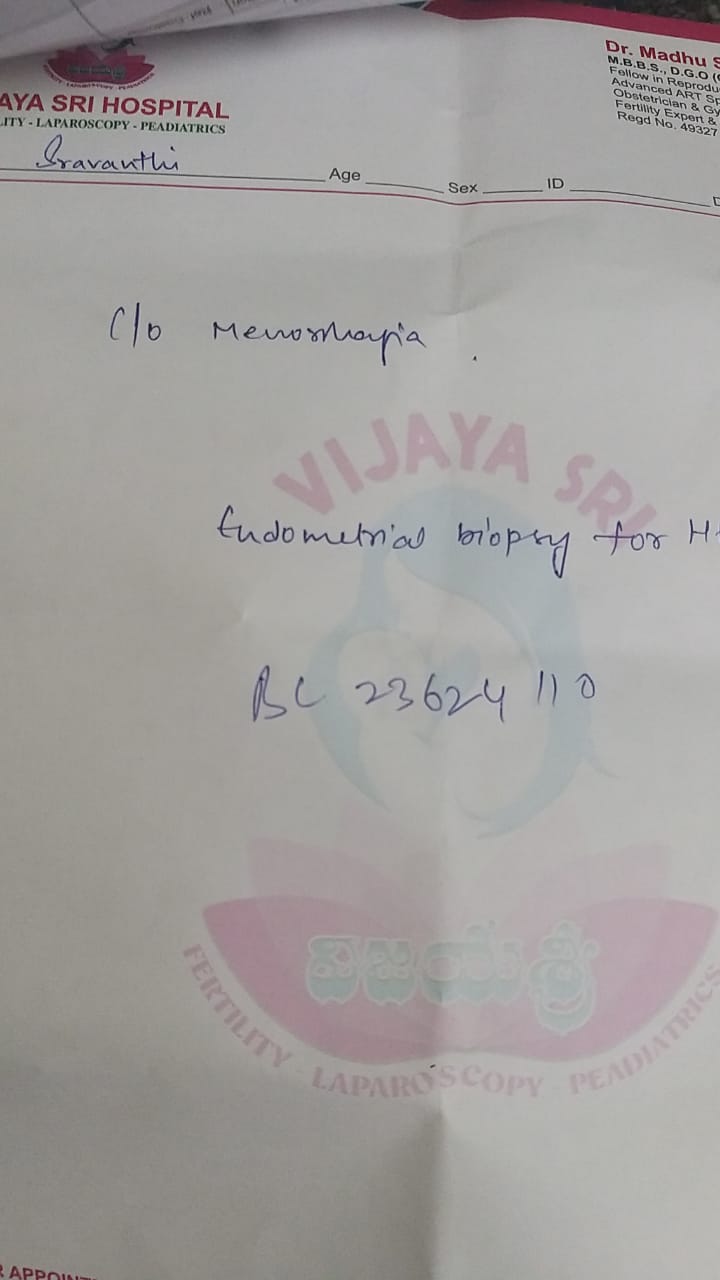 AYA SRI HOSPITAL
ITY - LAPAROSCOPY - PEADIATRICS
Dr. Madhu S
M.B.B.S., D.G.O (
Fellow in Reprodu
Advanced ART Sp
Obstetrician & Gy
Fertility Expert &
Regd No. 49327
Sravanthi
Age Sex ID D
C/o Menorrhagia
VIJAYA SRI
Endometrial biopsy for H
BC 23624110
ವಿಜಯಶ್ರೀ
FERTILITY - LAPAROSCOPY PEADIATRICS
R APPOIN